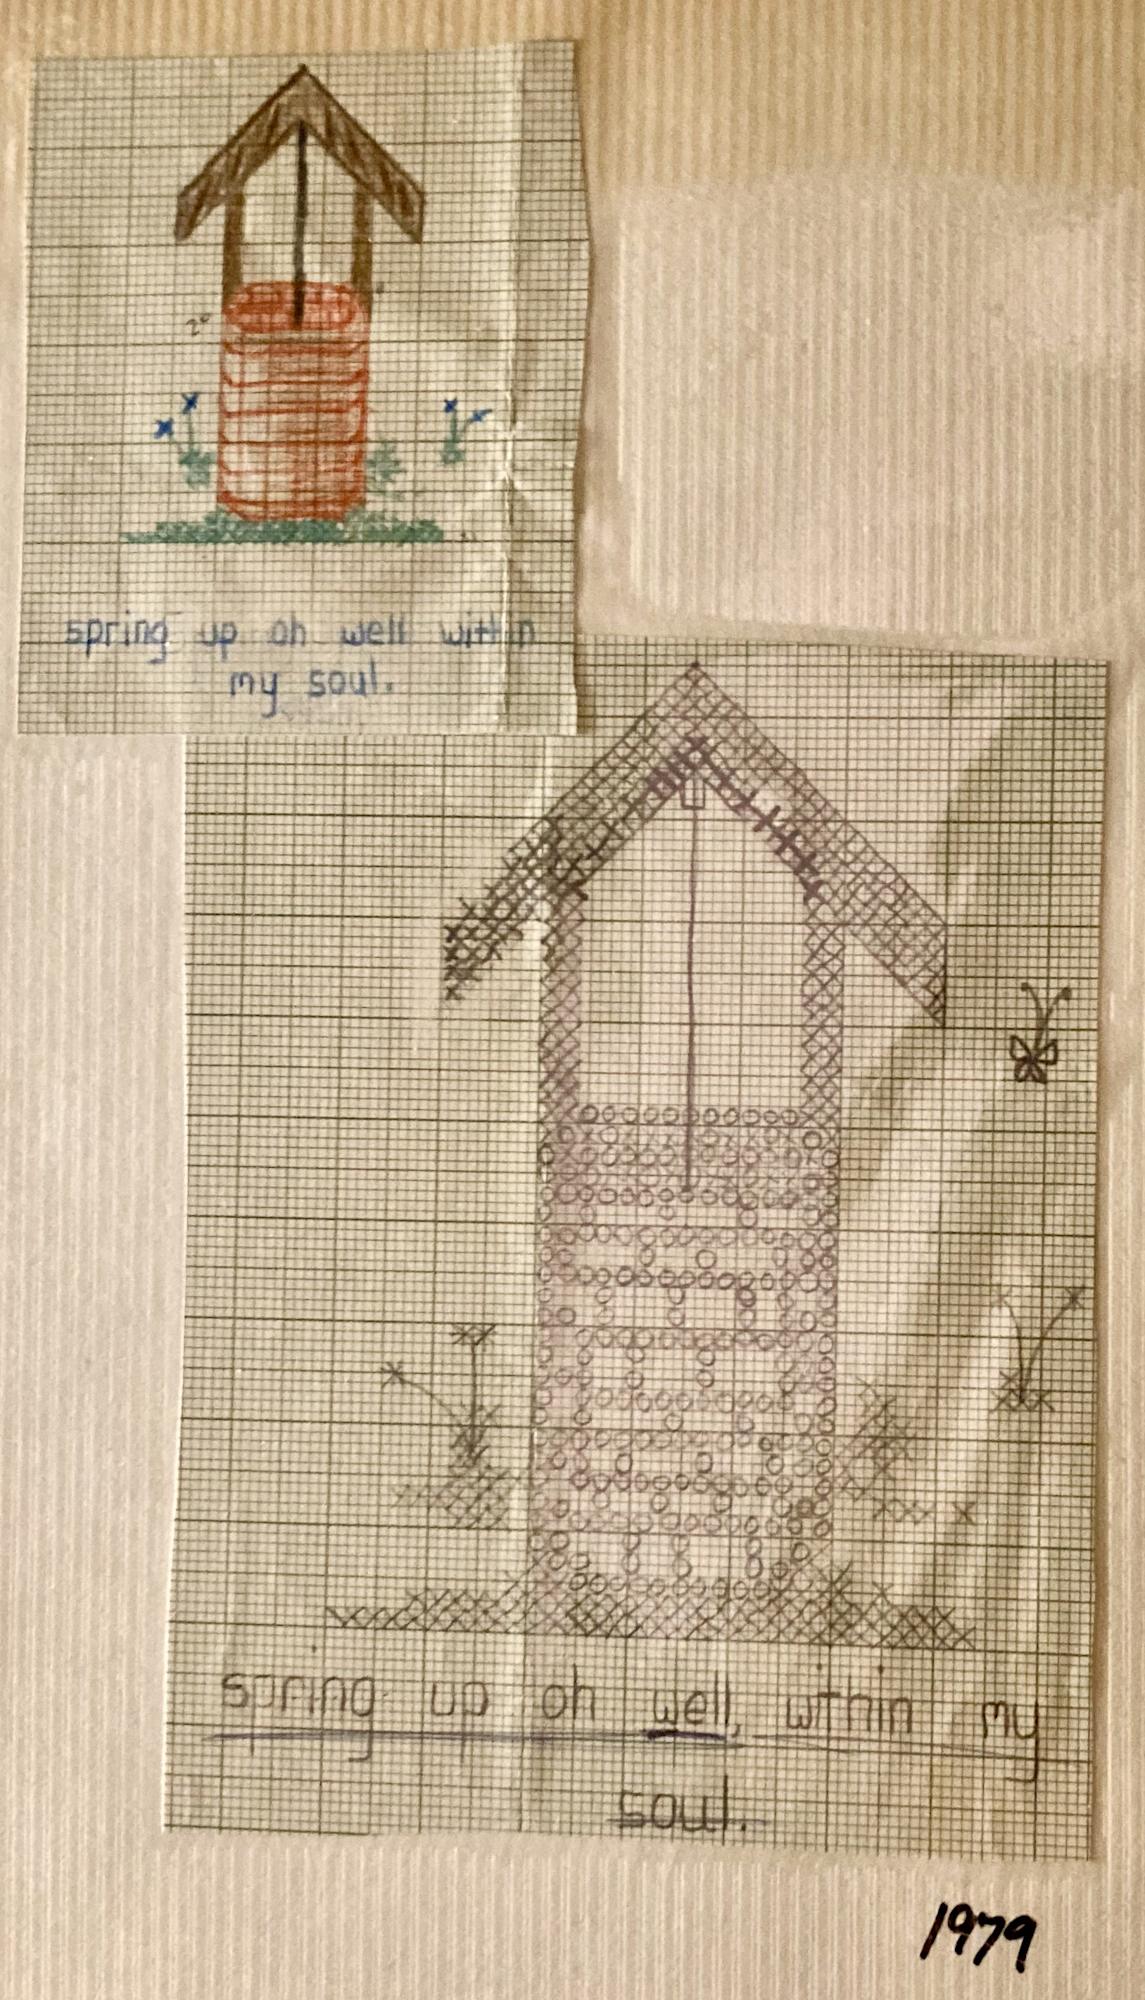 2"
spring up oh well within
my soul.
spring up oh well, within my
soul.
1979